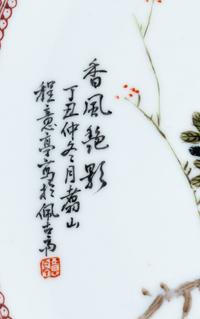 香風艷影
丁丑仲冬月翥山
程意亭寫於佩古斋